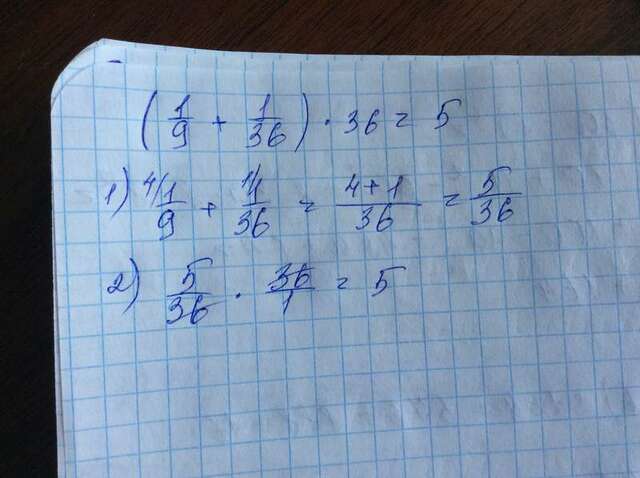 (1/9 + 1/36) · 36 = 5
1) 4/ 1/9 + 1/ 1/36 = (4+1)/36 = 5/36
2) 5/36 · 36/1 = 5